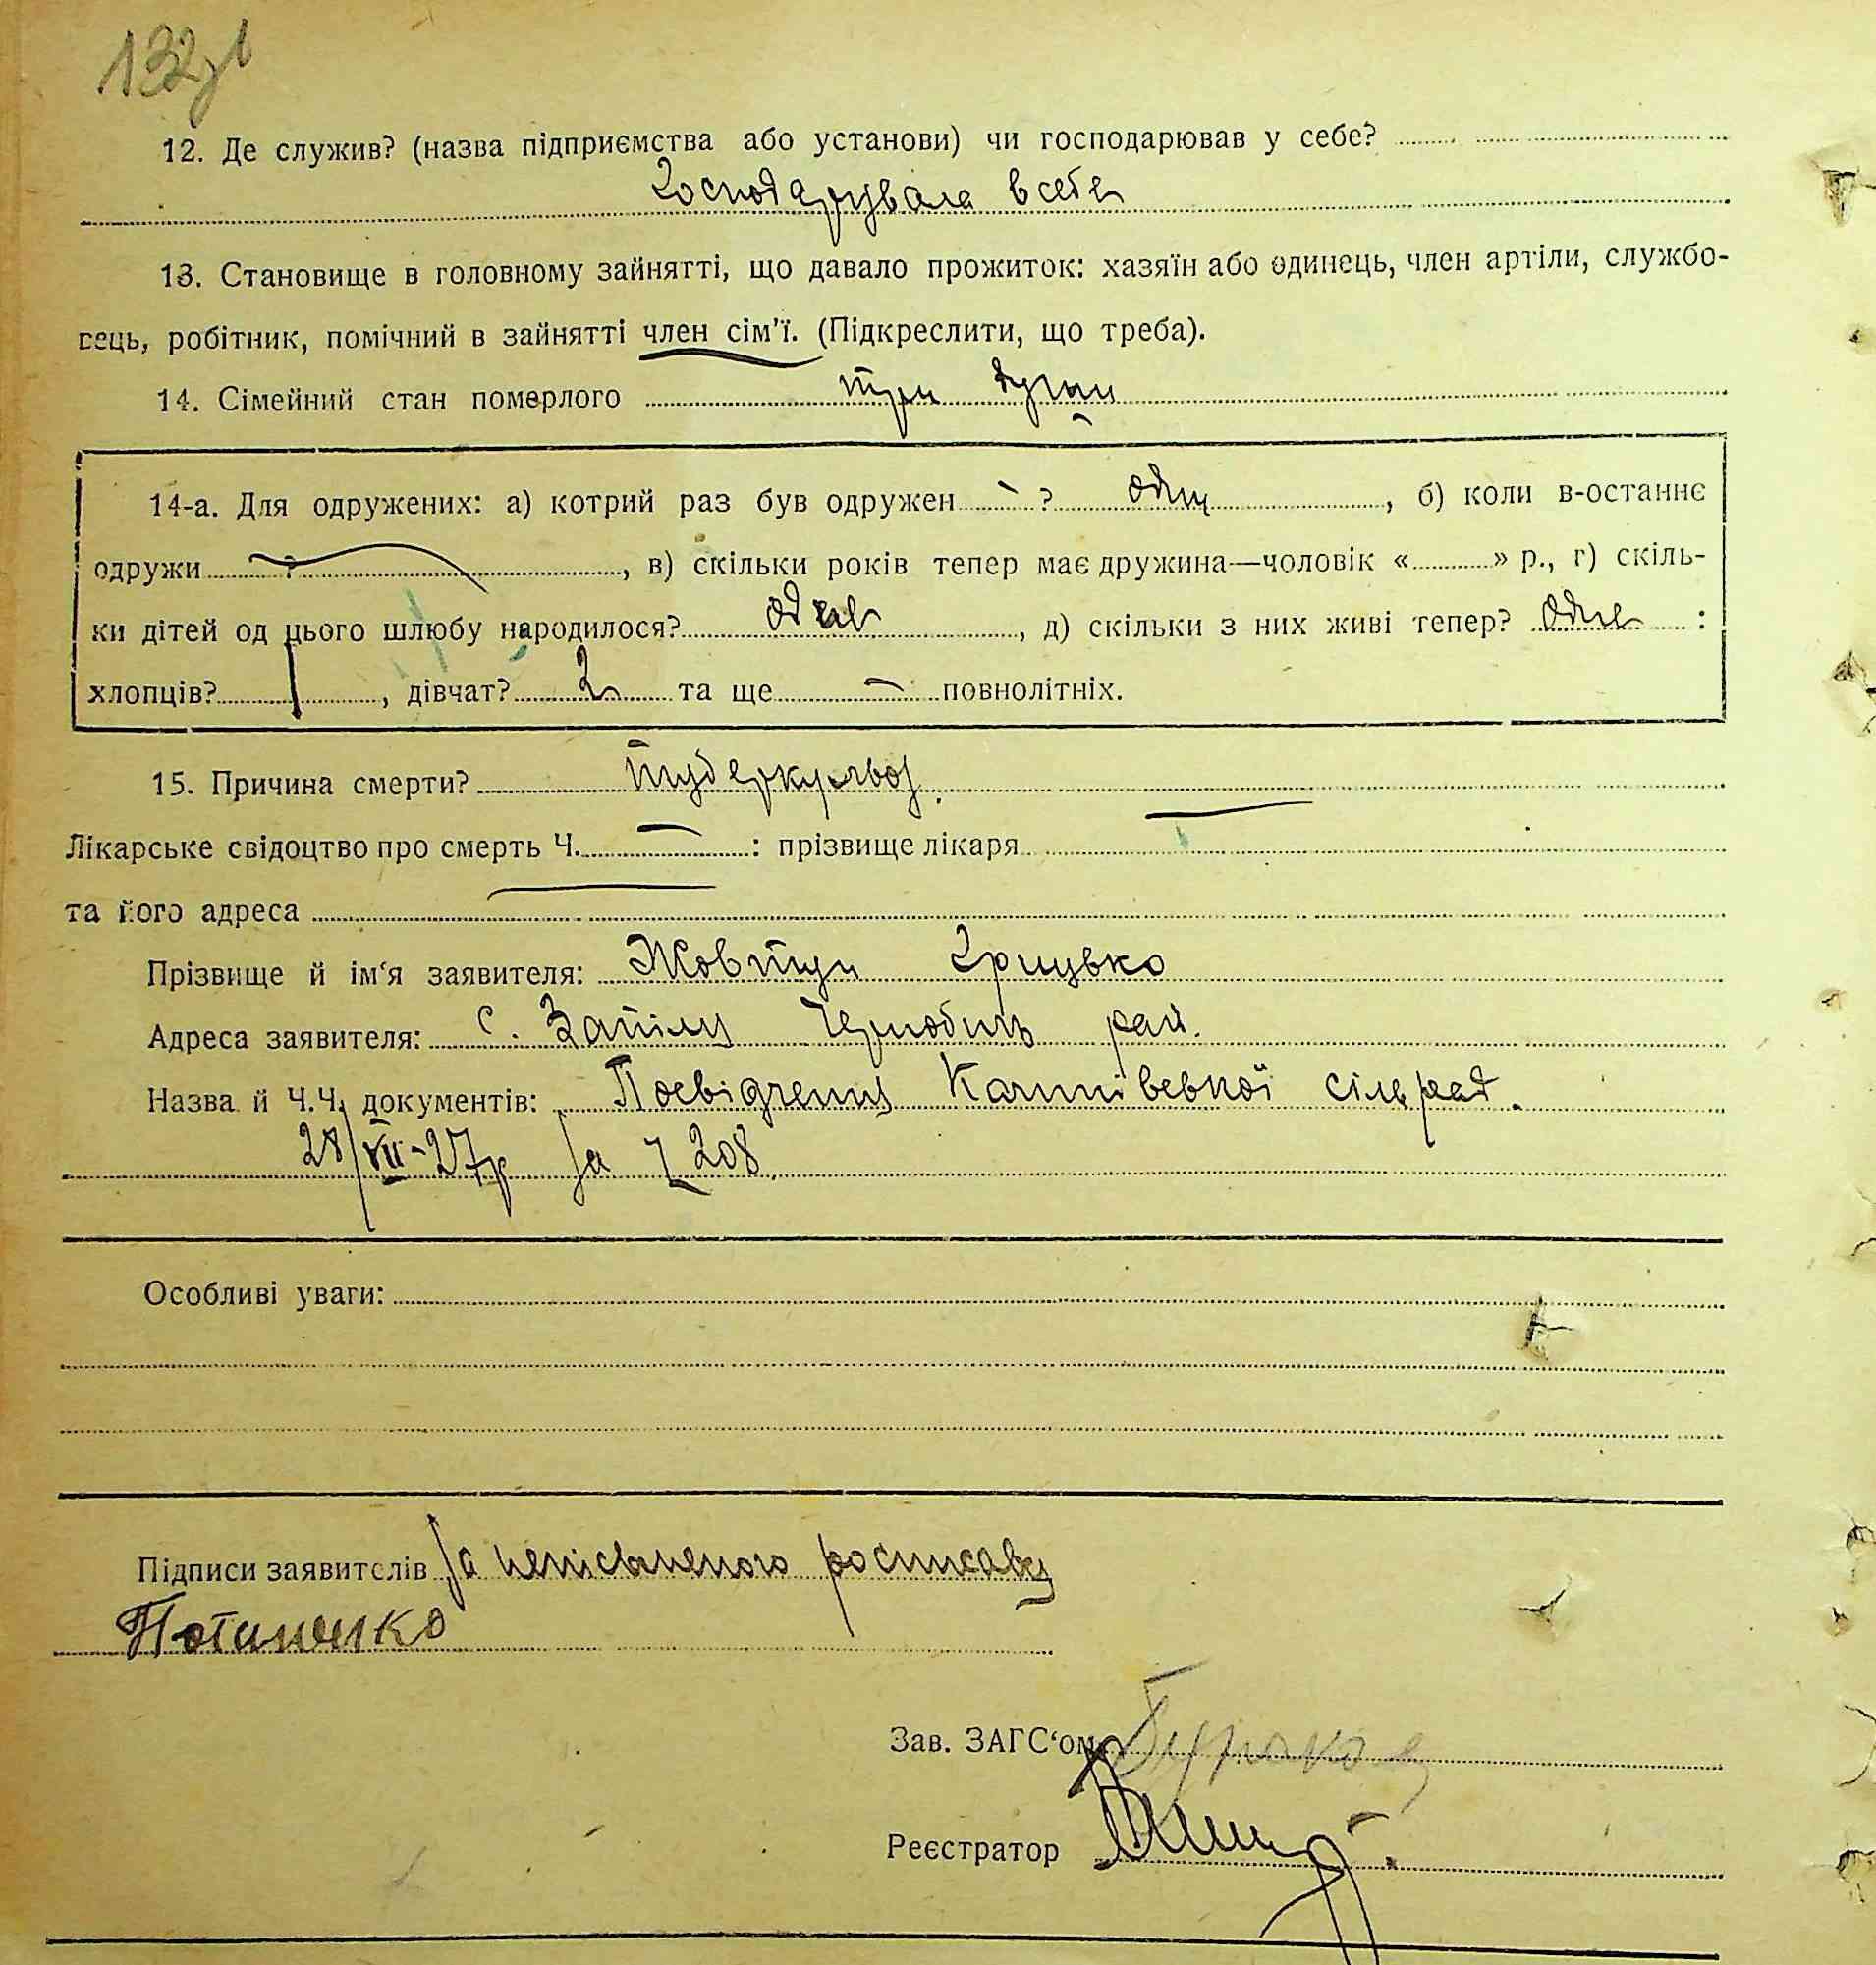 132
12. Де служив? (назва підприємства або установи) чи господарював у себе?
Господарувала в себе
13. Становище в головному зайнятті, що давало прожиток: хазяїн або одинець, член артіли, службо-
вець, робітник, помічний в зайнятті член сім'ї. (Підкреслити, що треба).
14. Сімейний стан померлого три душі
14-а. Для одружених: а) котрий раз був одружен - ?, б) коли в-останнє
одружи ?, в) скільки років тепер має дружина—чоловік « » р., г) скіль-
ки дітей од цього шлюбу народилося? одне, д) скільки з них живі тепер? одне :
хлопців? 1, дівчат? 2 та ще - повнолітніх.
15. Причина смерти? туберкульоз.
Лікарське свідоцтво про смерть Ч. — : прізвище лікаря —
та його адреса —
Прізвище й ім'я заявителя: Жовтун Грицько
Адреса заявителя: с. Чернобиль рай.
Назва й Ч.Ч. документів: Посвідчення сільрад.
28/VII-27р за ч 208.
Особливі уваги:
Підписи заявителів За неписьменого росписавсь
Потапенко
Зав. ЗАГС'ом
Реєстратор